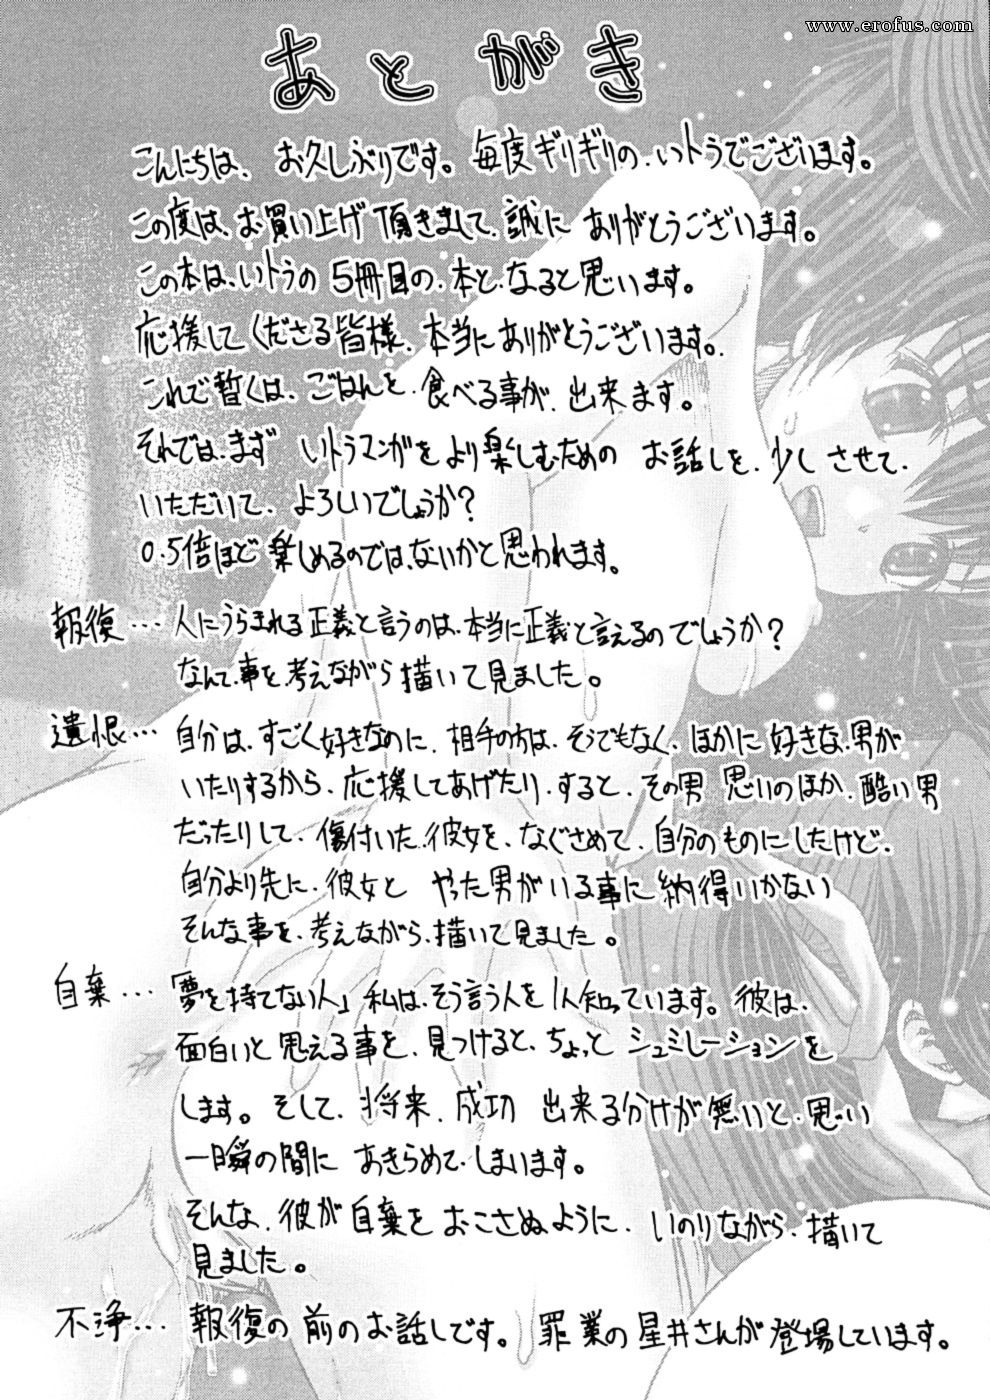 www.erofus.com
あとがき
こんにちは、お久しぶりです。毎度ギリギリの、いトうでございます。
この度は、お買い上げ頂きまして、誠にありがとうございます。
この本は、いトうの5冊目の、本と、なると思います。
応援してくださる皆様、本当にありがとうございます。
これで暫くは、ごはんを、食べる事が、出来ます。
それでは、まず いトうマンガをより楽しむための お話しを、少しさせて、
いただいて、よろしいでしょうか?
0.5倍ほど楽しめるのでは、ないかと思われます。
報復… 人にうらまれる正義と言うのは、本当に正義と言えるのでしょうか?
なんて、事を、考えながら描いて見ました。
遺恨… 自分は、すごく好きなのに、相手の方は、そうでもなく、ほかに好きな、男が
いたりするから、応援してあげたり、すると、その男 思いのほか、酷い男
だったりして、傷付いた、彼女を、なぐさめて、自分のものにしたけど、
自分より先に、彼女と やった男がいる事に納得いかない
そんな事を、考えながら、描いて見ました。
自棄… 「夢を持てない人」私は、そう言う人を1人知っています。彼は、
面白いと思える事を、見つけると、ちょっとシュミレーションを
します。そして、将来、成功 出来る分けが無いと、思い
一瞬の間に あきらめて、しまいます。
そんな、彼が自棄をおこさぬように、いのりながら、描いて
見ました。
不浄… 報復の前のお話しです。罪業の星井さんが登場しています。